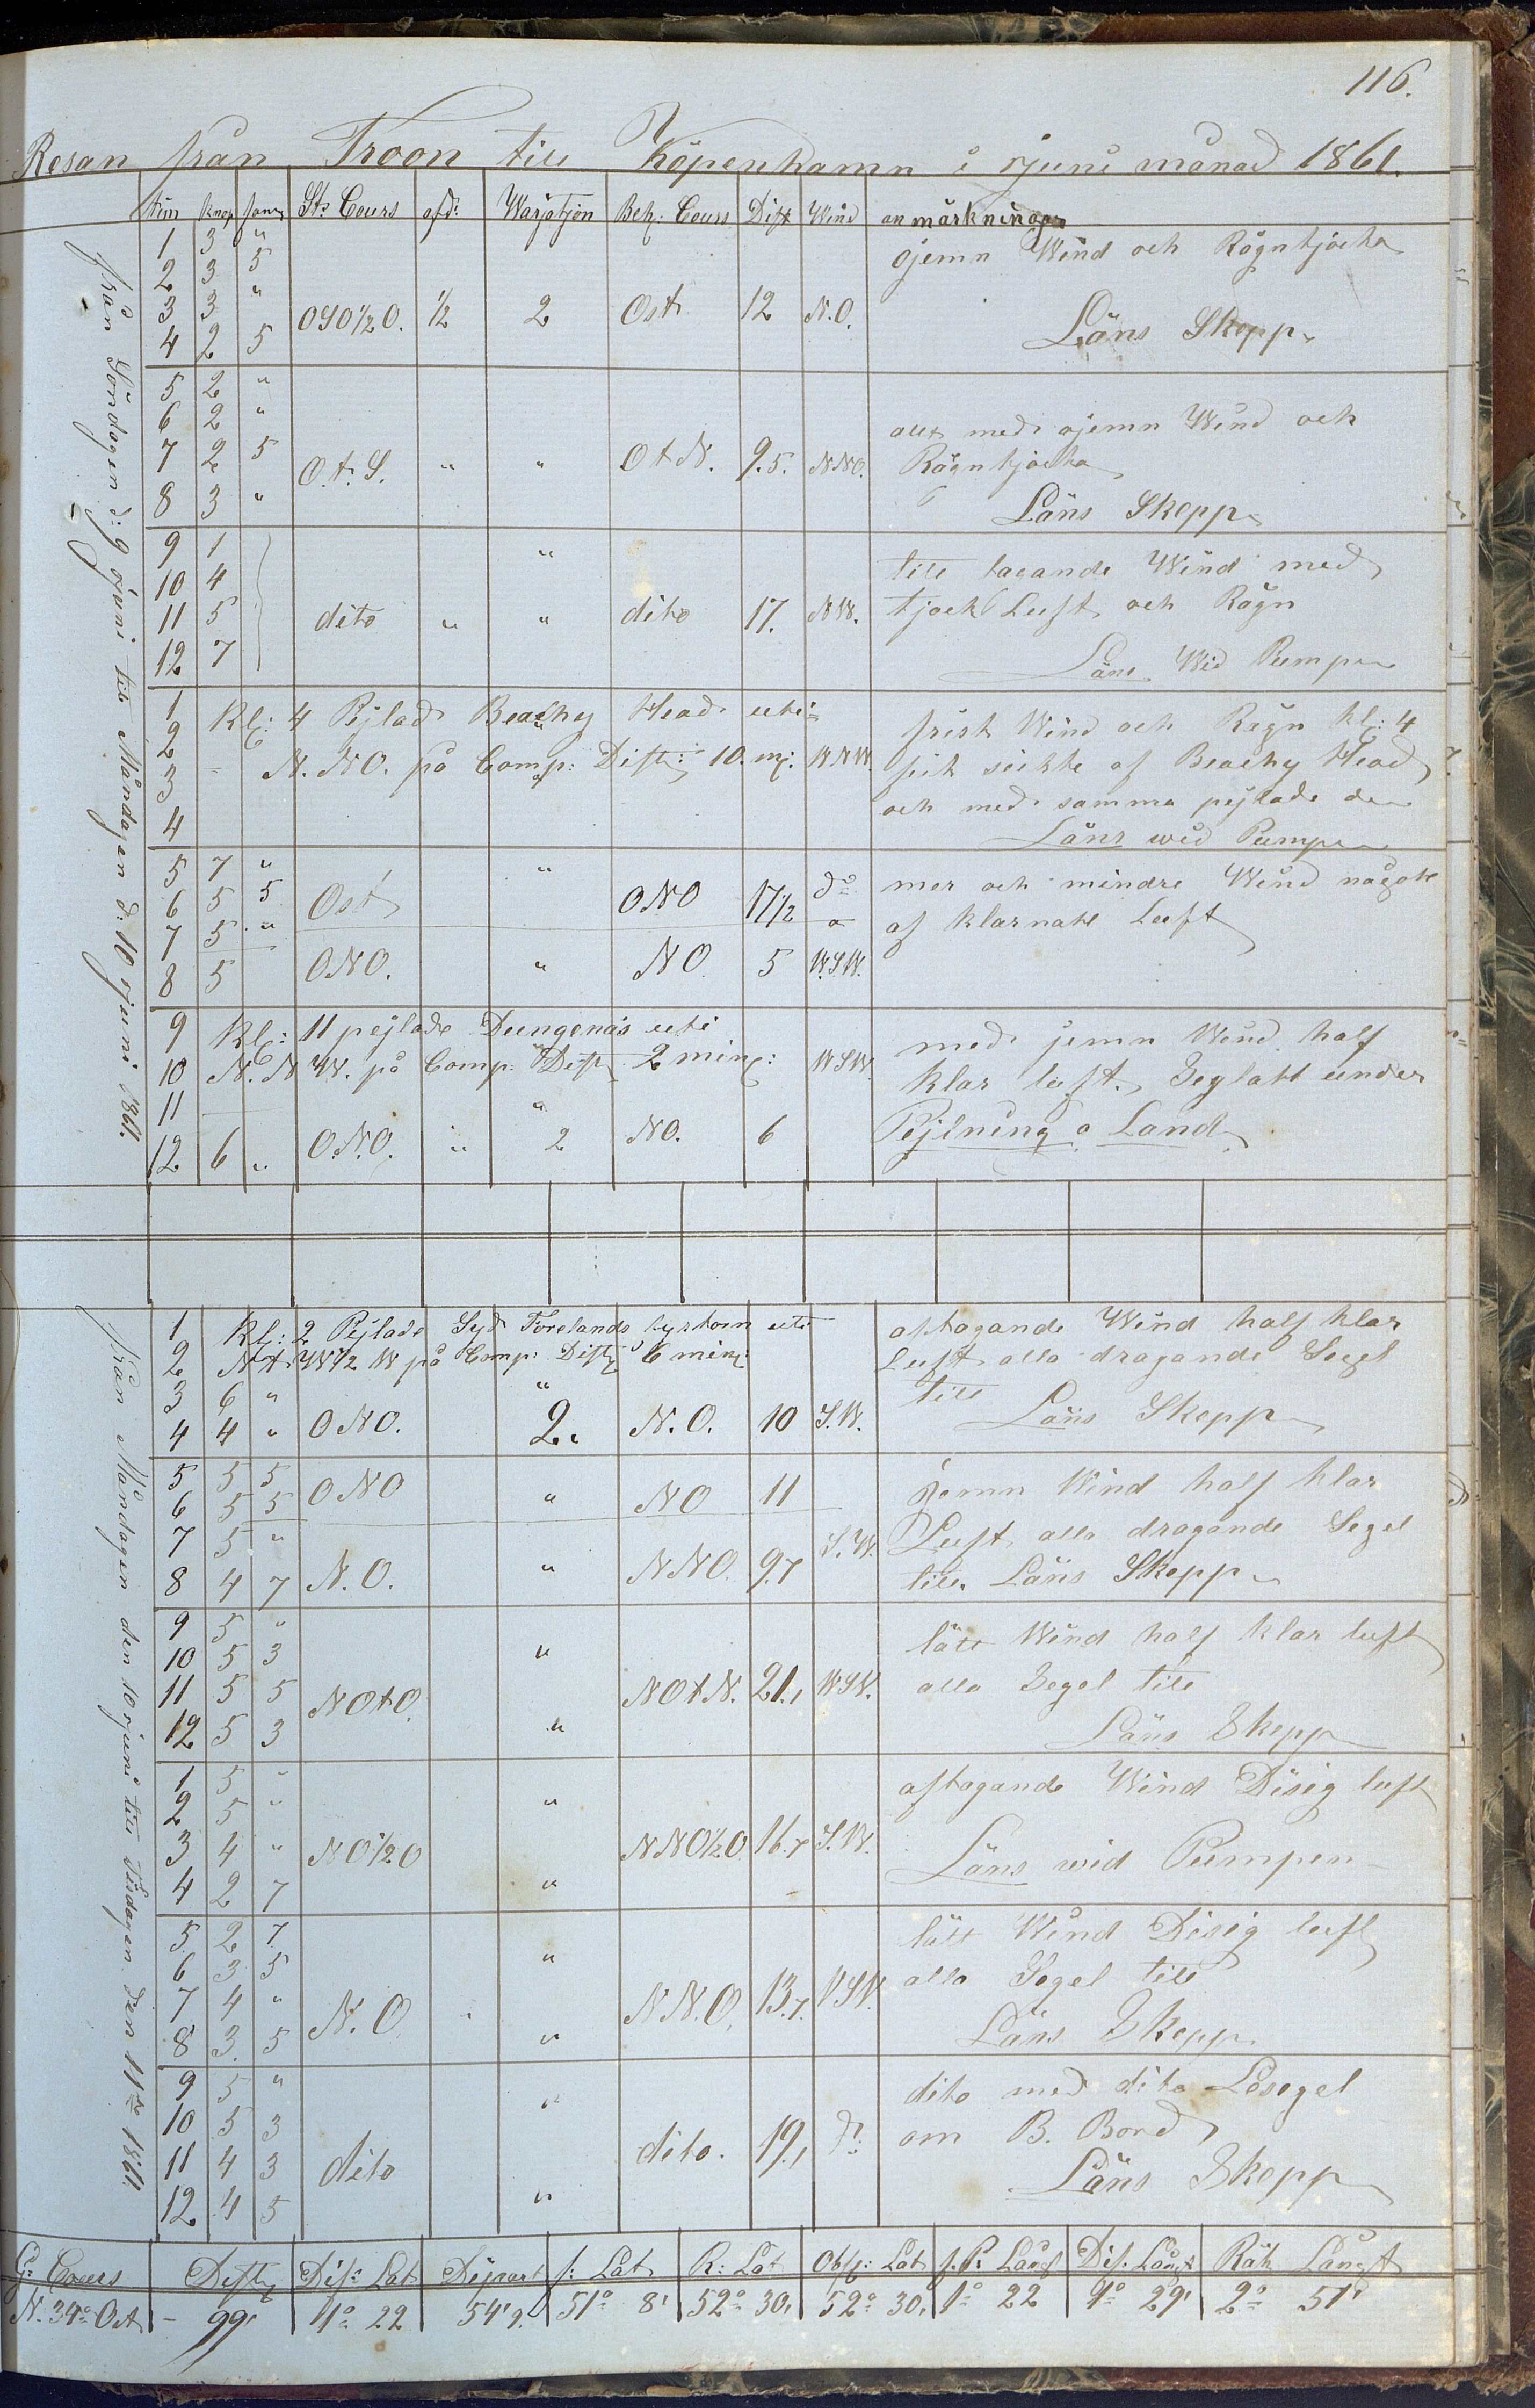 116.
Resan från Troon till Köpenhamn i juni månad 1861.
tim knop famn St: Cours afd: Warjatjon Beh: Cours Dist Wind anmärkningar
från Söndagen d: 9 juni till Måndagen d: 10 juni 1861.
1 3 "
2 3 5 ojemn Wind och Rägntjocka
3 3 "
4 2 5 OSO 1/2 O. 1/2 2 Ost 12 N.O. Läns Skepp
5 2 "
6 2 " allt med ojemn Wind och
7 2 5 O.t.S. " " OtN. 9.5. NNO. Rägntjocka
8 3 " Läns Skepp
9 1 "
10 4 till tagande Wind med
11 5 dito " " dito 17. NW. tjock Luft och Rägn
12 7 Läns Wid Pumpen
1 Kl: 4 Pejlad Beachy Head uti frisk Wind och Rägn kl: 4
2 N.NO. på Comp: Dist: 10. mj: WNW. fik sickte af Beachy Head
3 och med samma pejlade den
4 Läns wid Pumpen
5 7 " " mer och mindre Wind något
6 5 5 Ost ONO 17 1/2 do af klarnatt Luft
7 5 "
8 5 ONO. " NO 5 W.S.W.
9 Kl: 11 pejlade Dungenäs uti med jemn Wind half
10 N.NW. på Comp: Dist 2 min: WSW. klar luft. Seglatt under
11 " Pejlning o Land
12 6 " O.N.O. " 2 NO. 6
från Måndagen den 10 juni till Tisdagen den 11te 1861.
1 Kl: 2 Pejlade Syd Forelands fyrtorn uti aftagande Wind half klar
2 Nt W 1/2 W på Comp: Dist 6 min: Luft alla dragande Segel
3 6 " " till
4 4 " ONO. 2. N.O. 10 S.W. Läns Skepp
5 5 5 jemn Wind half klar
6 5 5 ONO " NO 11 Luft alla dragande Segel
7 5 " S.W.
8 4 7 N.O. " NNO. 9.7 till. Läns Skepp
9 5 " " lätt Wind half klar luft
10 5 3
11 5 5 NOtO. NOtN. 21.1 WSW. alla Segel till
12 5 3 " Läns Skepp
1 5 " aftagande Wind Disig luft
2 5 " "
3 4 " NO 1/2 O NNO 1/2 O. 16.7 S.W. Läns wid Pumpen
4 2 7 "
5 2 7 lätt Wind Disig luft
6 3 5 " alla Segel till
7 4 " N.O. N.N.O. 13.7. WSW.
8 3. 5 " Läns Skepp
9 5 " " dito med dito Läsegel
10 5 3 om B. Bord
11 4 3 dito dito. 19.1 do: Läns Skepp
12 4 5 "
G: Cours Dist Dif: Lat Depart f: Lat R: Lat Obs: Lat f.R: Långt Dif. Långt Räk Långt
N. 34° Ost – 99' 1° 22 54'9. 51° 8' 52° 30, 52° 30, 1° 22 1° 29' 2° 51'